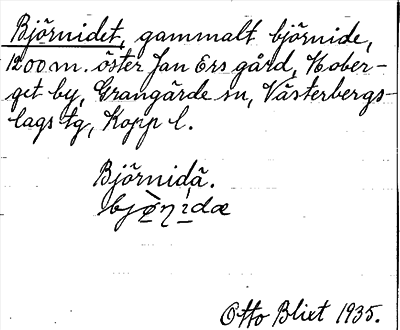 Björnidet, gammalt björnide,
1200 m. öster Jan Ers gård, Hober-
get by, Grangärde sn, Västerbergs-
lags tg, Kopp l.
Björnidä.
Otto Blixt 1935.